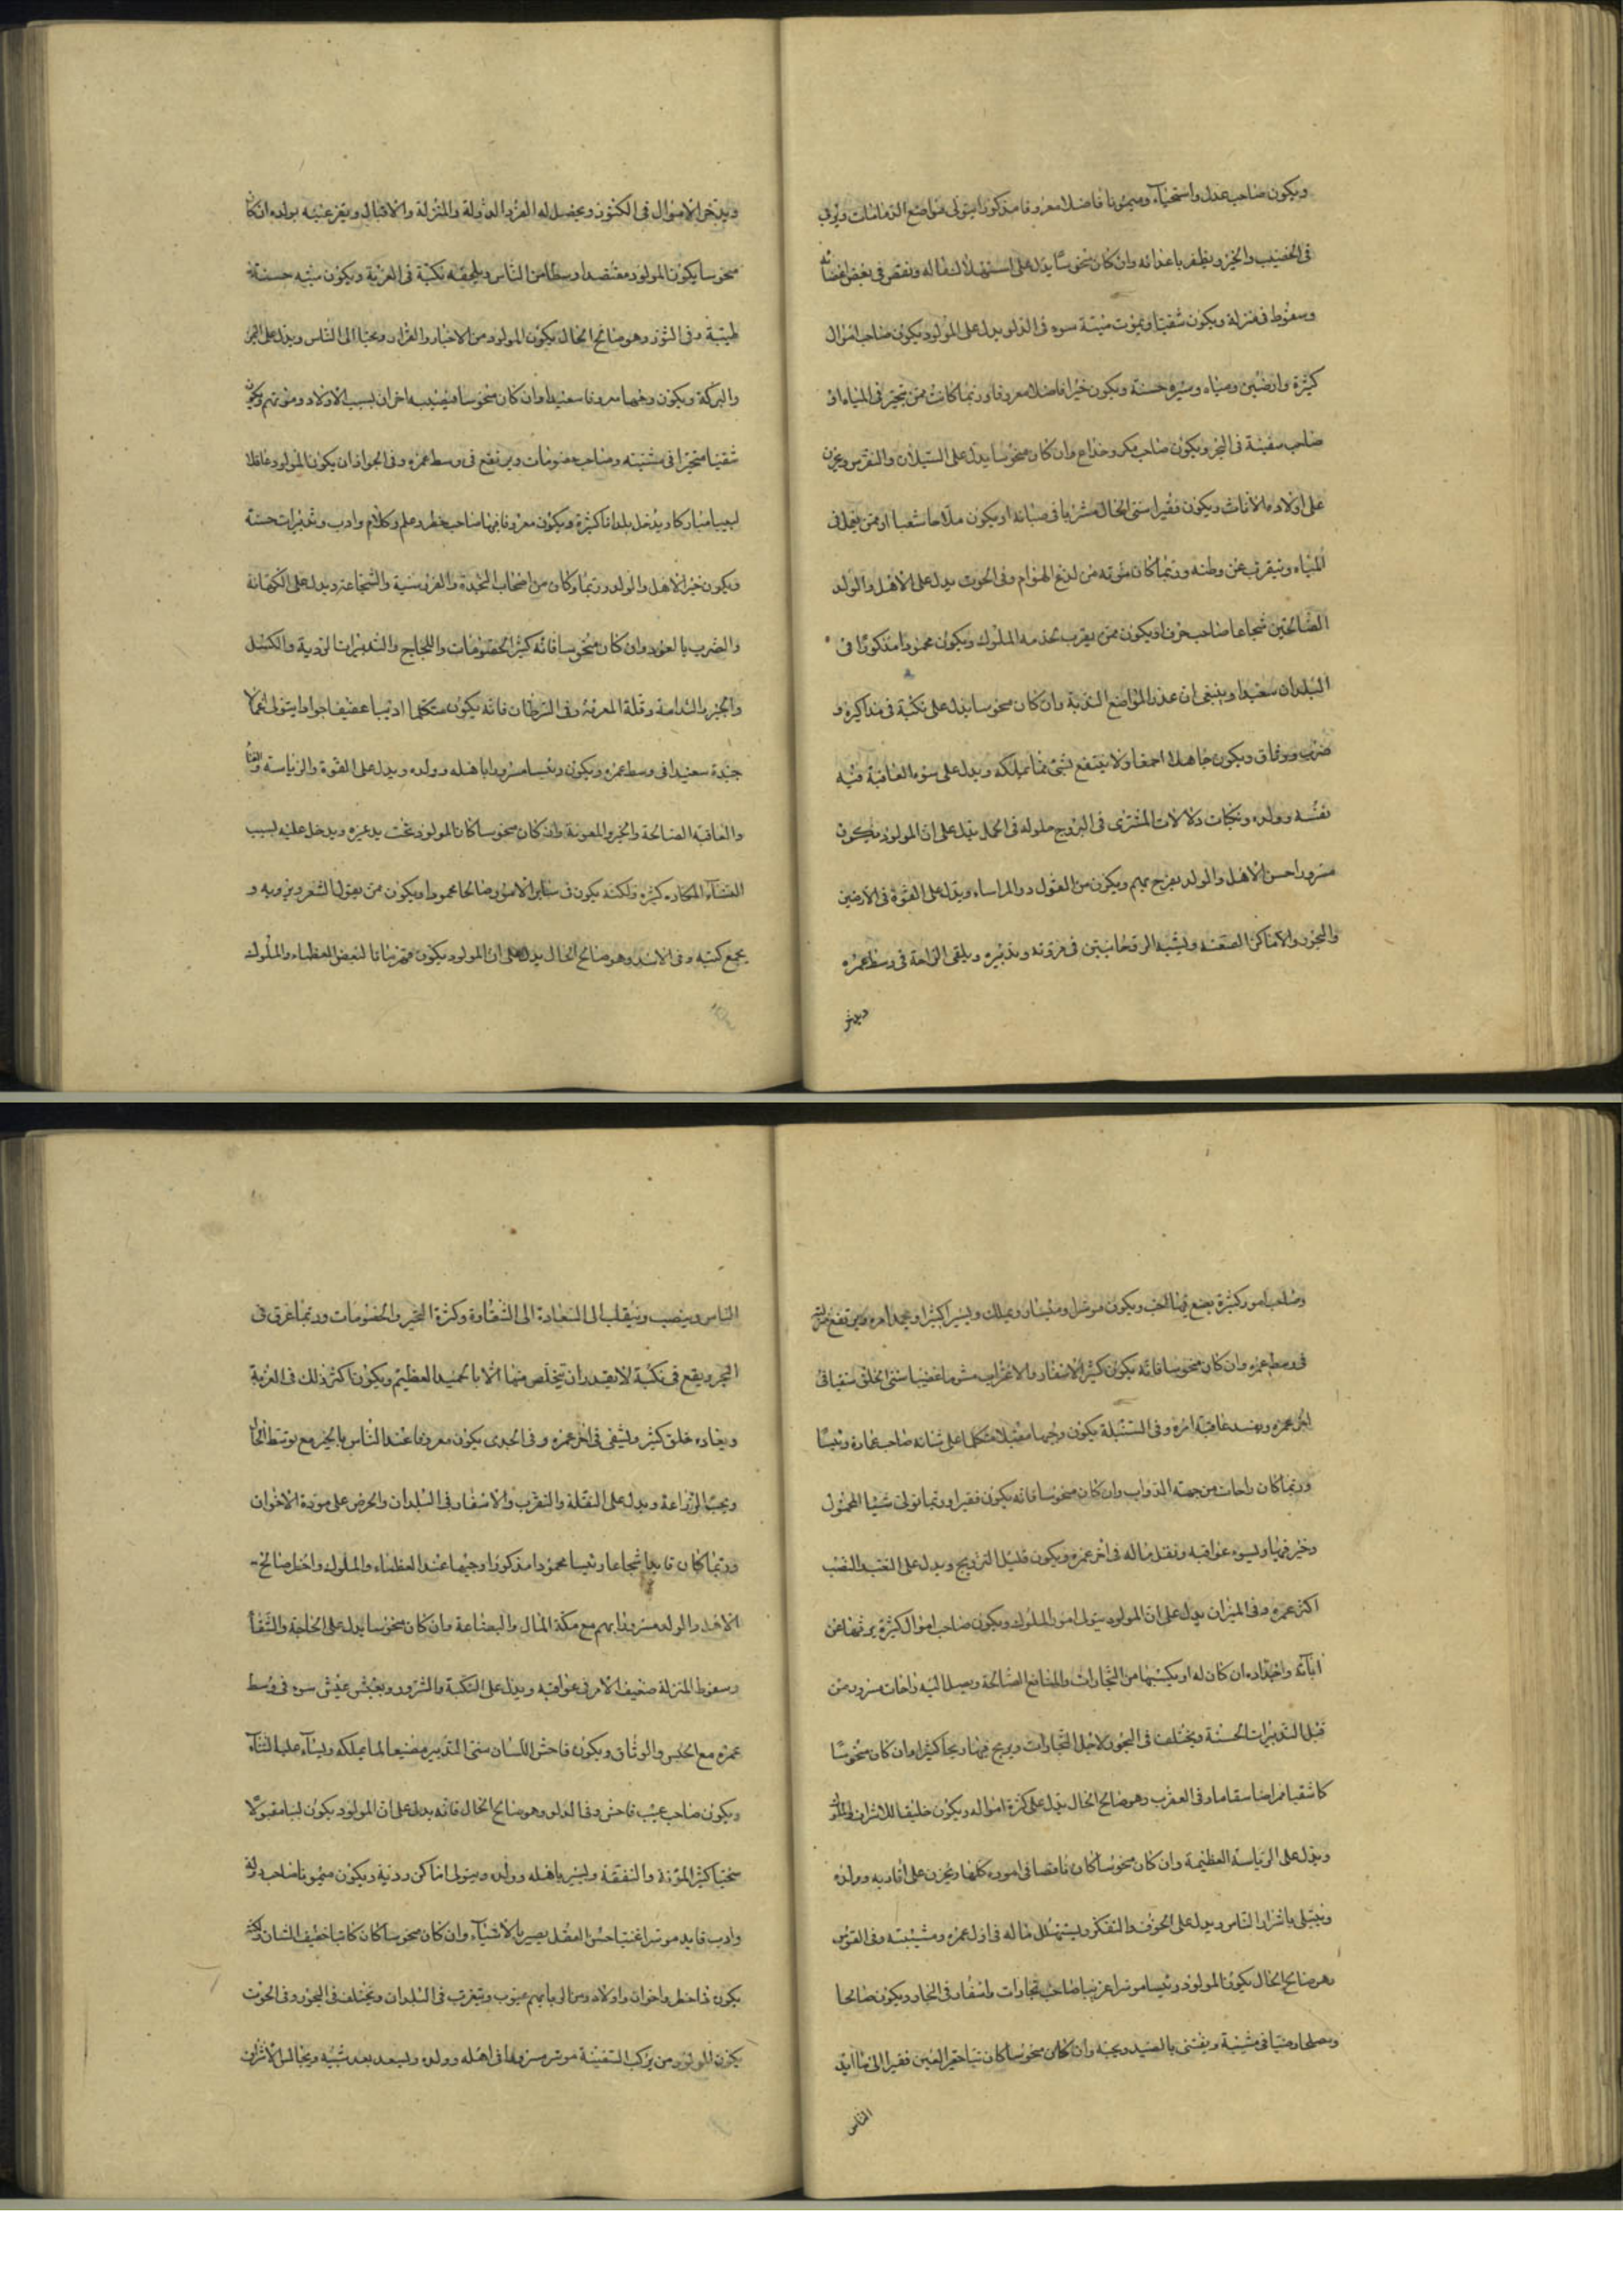 ويكون صاحب عدل واستحياء وميمونا فاضلا معروفا مذكورا يتولى مواضع الديانات ويرقى
فى الخصيب والخير ويظفر باعدائه وان كان منحوسا يدل على استهلاك لماله ونقص فى بعض اعضائه
وسقوط فى منزلة ويكون شقيا ويموت ميتة سوء فى الدلو يدل على المولود يكون صاحب اموال
كثيرة وارضين ومياه وسيرة حسنة ويكون خيرا فاضلا معروفا وربما كانت ممن يتجر فى المياه او
صاحب سفينة فى البحر ويكون صاحب مكر وخداع وان كان منحوسا يدل على السيلان والنقرس ويحزن
على اولاده الاناث ويكون فقيرا سيئ الحال فى صبائه او يكون ملاحا شقيا او ممن يعمل فى
المياه ويتقرب عن وطنه وربما كان موته من لدغ الهوام وفى الحوت يدل على الاهل والولد
الصالحين شجاعا صاحب حرف او يكون ممن يقرب بخدمة الملوك ويكون محمودا مذكورا فى
البلدان سعيدا وينبغى ان المواضع الندية وان كان منحوسا يدل على نكبة فى مذاكيره و
ضرب ووثاق ويكون جاهلا احمقا ولا ينتفع بشئ مما يملكه ويدل على سوء العاقبة فيه
نفسه وولده ونكبات دلالات المشترى فى البروج حلوله فى الحمل يدل على ان المولود يكون
مسرورا حسن الاهل والولد يفرح بهم ويكون من القول ويدل على القوة فى الارضين
والبحور والاماكن الصعبة ويشبه الروحانيين فى مروته وتدبيره ويلقى الراحة فى وسط عمره
ويدخر
ويدخر الاموال فى الكنوز ويحصل له العز والدولة والمنزلة والاقبال ويقر عينيه بولده ان كان
منحوسا يكون المولود مقتصدا وسطا من الناس ويلحقه نكبة فى الغربة ويكون ميته حسنة
طيبة وفى الثور وهو صالح الحال يكون المولود من الاخيار والقراء ومحبا الى الناس ويدل على الخير
والبركة ويكون وجيها معروفا سعيدا وان كان منحوسا فيصيبه احزان بسبب الاولاد وموتهم ويكون
شقيا متحيرا فى مشيته وصاحب خصومات ويرتفع فى وسط عمره وفى الجوزاء ان يكون المولود عاقلا
لبيبا مباركا ويدخل بلدانا كثيرة ويكون معروفا فيها صاحب خطر وعلم وكلام وادب وتدبيرات حسنة
ويكون خير الاهل والولد وربما كان من اصحاب النجدة والفروسية والشجاعة ويدل على الكهانة
والضرب بالعود وان كان منحوسا فانه كثير الخصومات واللجاج والتدبيرات الردية والكسل
والندامة وقلة المعرفة وفى السرطان فانه يكون متكلما اديبا عفيفا جوادا يتولى اعمالا
جيدة سعيدا فى وسط عمره ويكون رئيسا مسرورا باهله وولده ويدل على القوة والرياسة
والعاقبة الصالحة والخير والمعونة وان كان منحوسا كان المولود تحت يد غيره ويدخل عليه بسبب
النساء المكاره كثيرة ولكنه يكون فى سائر الامور صالحا محمودا ويكون ممن يقول الشعر ويرويه و
يجمع كتبه وفى الاسد وهو صالح الحال يدل على ان المولود يكون قهرمانا لبعض العظماء والملوك
وصاحب امور كثيرة يضع فيها الحق ويكون موسرا ويملك ويسير كثيرا ويحمد امره ويرتفع منزلته
فى وسط عمره وان كان منحوسا فانه يكون كثير الاسفار والاغتراب مشوما غضبا سيئ الخلق شقيا فى
اخر عمره ويفسد عاقبة امره وفى السنبلة يكون وجيها مقبلا متكلما على لسانه صاحب عمارة ورئيسا
وربما كان راحات من جهة الدواب وان كان منحوسا فانه يكون فقيرا وربما تولى شيئا
فيها ويسوء عواقبه ويقل ماله فى اخر عمره ويكون قليل التزويج ويدل على التعب والنصب
اكثر عمره وفى الميزان يدل على ان المولود يتولى امور الملوك ويكون صاحب اموال كثيرة يرثها عن
ابائه واجداده ان كان له او يكسبها من التجارات والمنافع الصالحة ويصل اليه راحات وسرور من
قبل التدبيرات الحسنة ويختلف فى البحور لاجل التجارات ويربح فيها ربحا كثيرا وان كان منحوسا
كان شقيا ممراضا سقاما وفى العقرب وهو صالح الحال يدل على كثرة امواله ويكون خليفا للاشراف والملوك
ويدل على الرياسة العظيمة وان كان منحوسا كان ناقصا فى اموره كلها ويحزن على اقاربه وولده
ويبتلى باشرار الناس ويدل على الخوف والتفكر ويستهلك ماله فى اول عمره ومشيبته وفى القوس
وهو صالح الحال يكون المولود رئيسا موسرا عزيزا صاحب تجارات واسفار فى البحار ويكون صالحا
ومصلحا فى مشيبه ويقتنى بالصيد ويحبه وان كان منحوسا كان فقيرا الى ما ايدى
الناس
الناس وينصب وينقلب الى السعادة الى الشقاوة وكثرة التحير والخصومات وربما غرق فى
البحر ويقع فى نكبة لا يقدر ان يتخلص منها الا بالجهيد العظيم ويكون اكثر ذلك فى الغربة
ويعاديه خلق كثير ويشقى فى اخر عمره وفى الجدى يكون معروفا عند الناس بالخير مع توسط الحال
ويحب الزراعة ويدل على النقلة والتقرب والاسفار فى البلدان والحرص على مودة الاخوان
وربما كان قايدا شجاعا ورئيسا محمودا مذكورا وجيها عند العظماء والملوك واصل صالح
الاهل والولد مسرورا بهم مع مكنة المال والبضاعة وان كان منحوسا يدل على الحاجة والشقاء
وسقوط المنزلة ضعيف الامر فى عواقبه ويدل على النكبة والشرور ويعيش عيش سوء فى وسط
عمره مع الحبس والوثاق ويكون فاحش اللسان سيئ التدبير مضيعا لما يملكه ويساء عليه الثناء
ويكون صاحب عيب فاحش وفى الدلو وهو صالح الحال فانه يدل على ان المولود يكون لبيبا مقبولا
سخيا كثير المؤنة والنفقة ويسر باهله وولده ويتولى اماكن ردية ويكون ميمونا صاحب دولة
وادب قايد موسرا غنيا حسن العقل بصيرا بالاشياء وان كان منحوسا كان كاتبا خفيف الشان ولكنه
يكون ذا حظ واخوان واولاد ومن الى بابهم عيوب ويتغرب فى البلدان ويختلف فى البحور وفى الحوت
يكون المولود ممن يركب السفينة موسر مسرورا فى اهله وولده ويسعد بعد شيبه ويجالس الاشراف